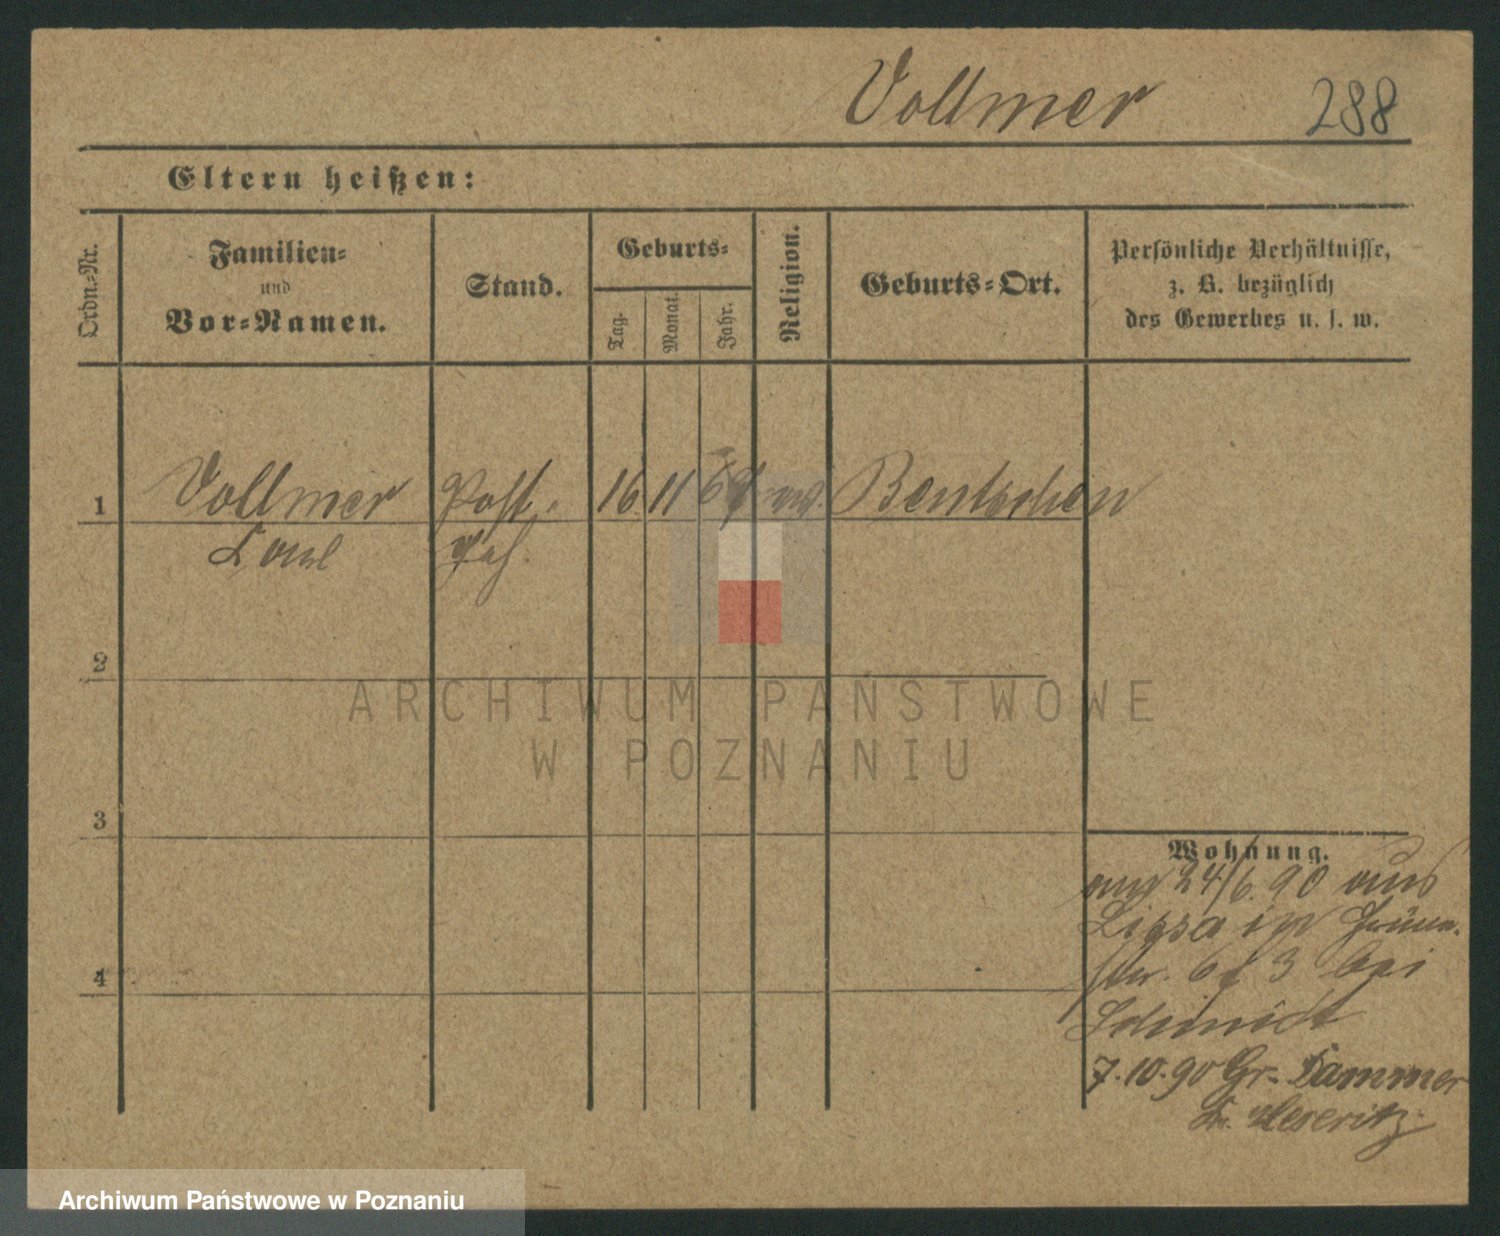 Vollmer 288
Eltern heißen:
Ordn.-Nr.
Familien-
und
Vor-Namen.
Stand.
Geburts-
Tag.
Monat.
Jahr.
Religion.
Geburts-Ort.
Persönliche Verhältnisse,
z. B. bezüglich
des Gewerbes u. s. w.
1 Vollmer Post. 16 11 69 ev. Bentschen
Karl
2
3
4
Wohnung.
24/6 90 aus
Lissa in
3 bei
Schmidt
7.10.90 Gr. Dammer
Kr. Meseritz
ARCHIWUM PAŃSTWOWE
W POZNANIU
Archiwum Państwowe w Poznaniu